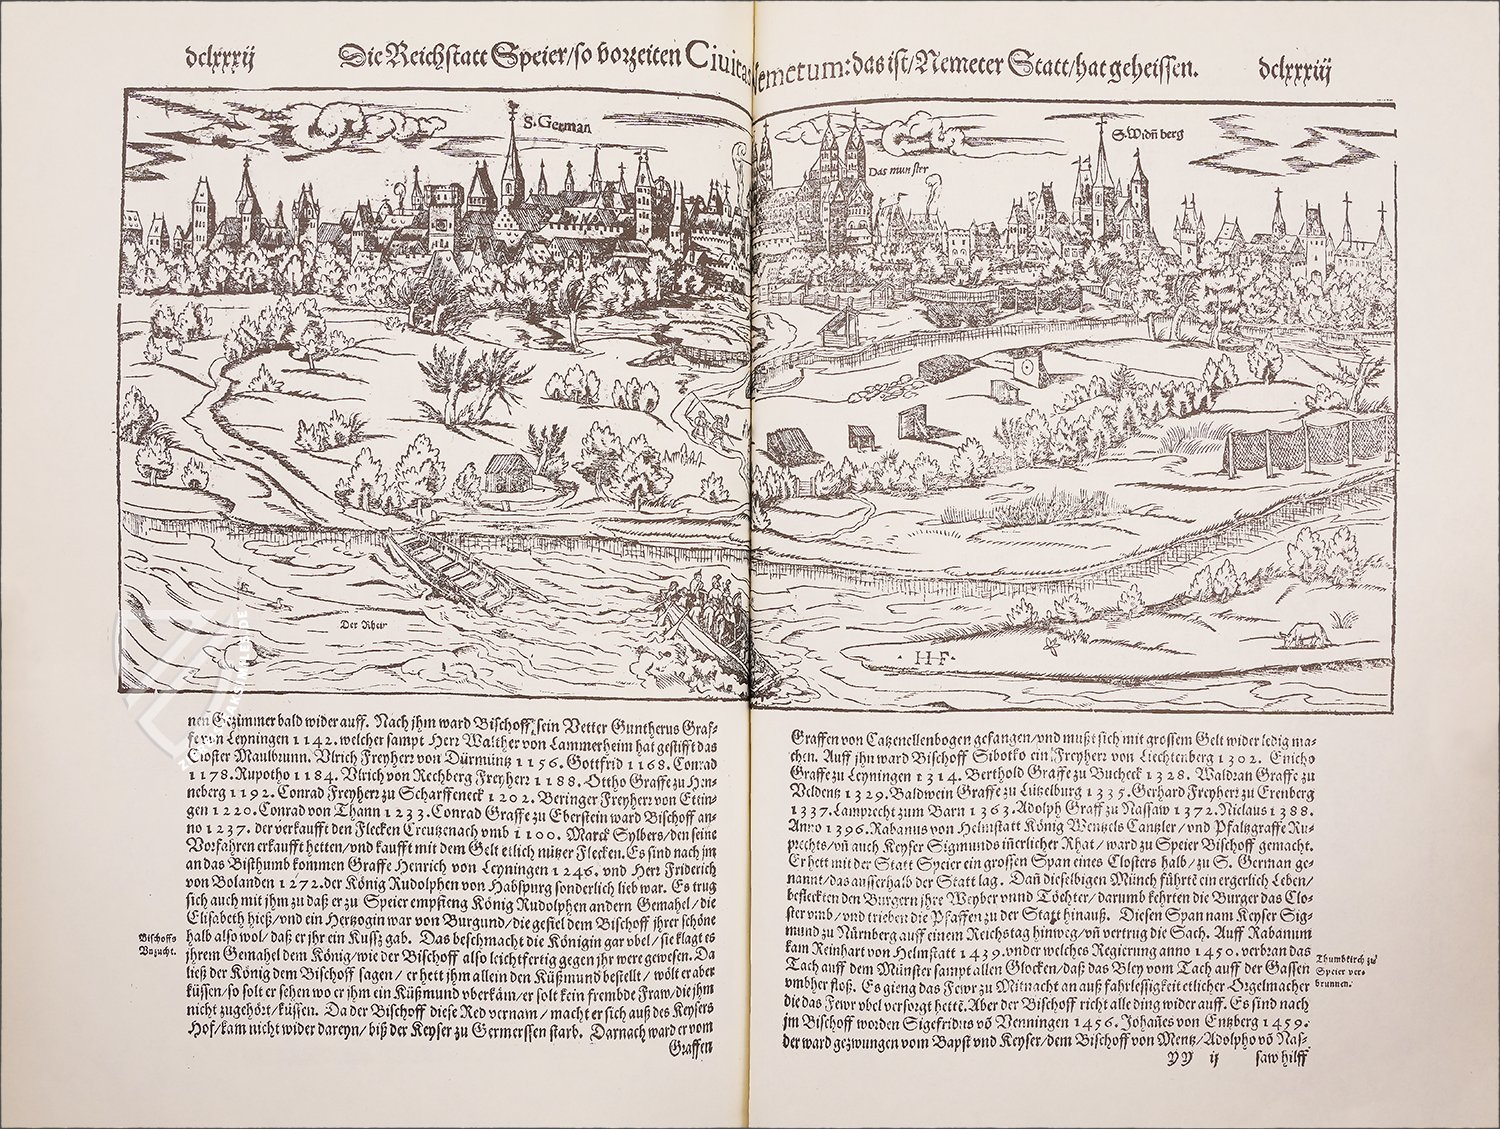 dclxxxij
Die Reichstatt Speier/so vorzeiten Ciuitas Nemetum: das ist/Nemeter Statt/hat geheissen.
dclxxxiij
S. German
Das munster
S. Widn̄ berg
Der Rhein
· HF ·
nen Gezimmer bald wider auff. Nach jhm ward Bischoff sein Vetter Guntherus Graf-
fe von Leyningen 1142. welcher sampt Herr Walther von Lammerheim hat gestifft das
Closter Maulbrunn. Vlrich Freyherr von Dürmüntz 1156. Gottfrid 1168. Conrad
1178. Rupotho 1184. Vlrich von Rechberg Freyherr 1188. Ottho Graffe zu Hen-
neberg 1192. Conrad Freyherr zu Scharffeneck 1202. Beringer Freyherr von Ettin-
gen 1220. Conrad von Thann 1233. Conrad Graffe zu Eberstein ward Bischoff an-
no 1237. der verkaufft den Flecken Creutzenach vmb 1100. Marck Sylbers/den seine
Vorfahren erkaufft hetten/vnd kaufft mit dem Gelt etlich nützer Flecken. Es sind nach jm
an das Bisthumb kommen Graffe Henrich von Leyningen 1246. vnd Herr Friderich
von Bolanden 1272. der König Rudolphen von Habspurg sonderlich lieb war. Es trug
sich auch mit jhm zu daß er zu Speier empfieng König Rudolphen andern Gemahel/die
Elisabeth hieß/vnd ein Hertzogin war von Burgund/die gefiel dem Bischoff jhrer schöne
halb also wol/daß er jhr ein Kussz gab. Das beschmacht die Königin gar vbel/sie klagt es
jhrem Gemahel dem König/wie der Bischoff also leichtfertig gegen jhr were gewesen. Da
ließ der König dem Bischoff sagen/er hett jhm allein den Küßmund bestellt/wölt er aber
küssen/so solt er sehen wo er jhm ein Küßmund vberkäm/er solt kein frembde Fraw/die jhm
nicht zugehört/küssen. Da der Bischoff diese Red vernam/macht er sich auß des Keysers
Hof/kam nicht wider dareyn/biß der Keyser zu Germerssen starb. Darnach ward er vom
Graffen
Bischoffs
Vnzucht.
Graffen von Catzenellenbogen gefangen/vnd mußt sich mit grossem Gelt wider ledig ma-
chen. Auff jhn ward Bischoff Sibotko ein Freyherr von Liechtenberg 1302. Enicho
Graffe zu Leyningen 1314. Berthold Graffe zu Bucheck 1328. Waldran Graffe zu
Veldentz 1329. Baldwein Graffe zu Lützelburg 1335. Gerhard Freyherr zu Erenberg
1337. Lamprecht zum Barn 1363. Adolph Graff zu Nassaw 1372. Niclaus 1388.
Anno 1396. Rabanus von Helmstatt König Wentzels Cantzler/vnd Pfaltzgraffe Ru-
prechts/vñ auch Keyser Sigmunds iñerlicher Rhat/ward zu Speier Bischoff gemacht.
Er hett mit der Statt Speier ein grossen Span eines Closters halb/zu S. German ge-
nannt/das ausserhalb der Statt lag. Dañ dieselbigen Münch führtē ein ergerlich Leben/
befleckten den Burgern jhre Weyber vnnd Töchter/darumb kehrten die Burger das Clo-
ster vmb/vnd trieben die Pfaffen zu der Statt hinauß. Diesen Span nam Keyser Sig-
mund zu Nürnberg auff einem Reichstag hinweg/vñ vertrug die Sach. Auff Rabanum
kam Reinhart von Helmstatt 1439. vnder welches Regierung anno 1450. verbran das
Tach auff dem Münster sampt allen Glocken/daß das Bley vom Tach auff der Gassen
vmbher floß. Es gieng das Fewr zu Mitnacht an auß fahrlessigkeit etlicher Orgelmacher
die das Fewr vbel versorgt hettē. Aber der Bischoff richt alle ding wider auff. Es sind nach
jm Bischoff worden Sigefridus võ Venningen 1456. Johañes von Entzberg 1459.
der ward gezwungen vom Bapst vnd Keyser/dem Bischoff von Mentz/Adolpho võ Nas-
YY ij
saw hilff
Thumbkirch zů
Speier ver-
brunnen.